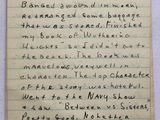 Banged around in work,
rearranged some baggage
that was stored. Finished
my book of Wuthering
Heights so I didn't go to
the beach. The Book was
marvelous, very well in
character. The top character
of the story was hateful.
Went to the Navy Show
& saw "Between us Sisters,
Pretty Good. No letter